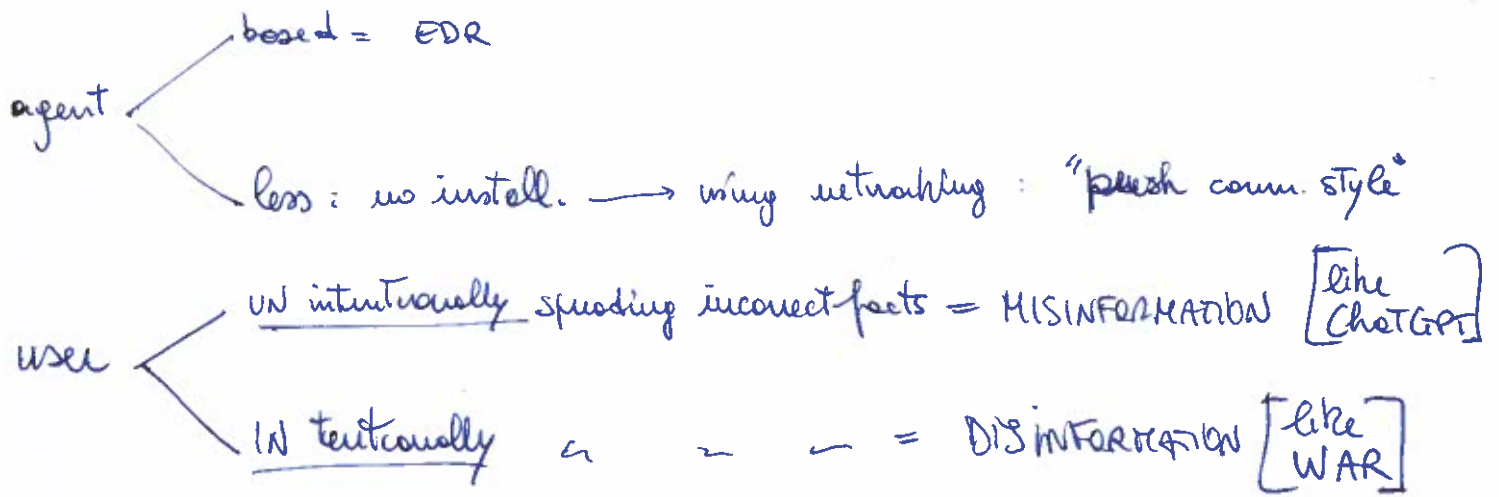 based = EDR
agent
less : no install. → using networking : "push comm. style"
UN intentionally spreading incorrect facts = MISINFORMATION [like ChatGPT]
user
IN tentionally " " " = DISINFORMATION [like WAR]